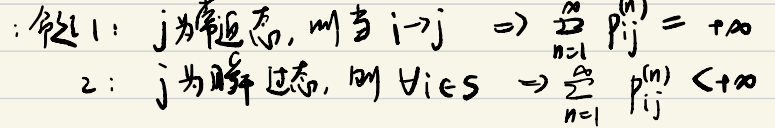 : 命题 1: j为常返态, 则当 i→j ⇒ \sum_{n=1}^{∞} p_{ij}^{(n)} = +∞
2: j为瞬过态, 则 ∀i∈S ⇒ \sum_{n=1}^{∞} p_{ij}^{(n)} < +∞